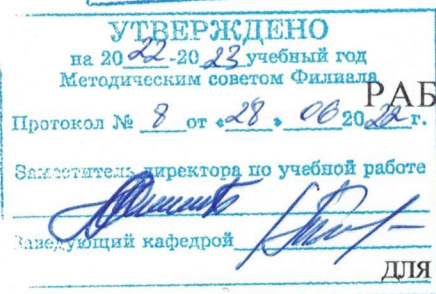 УТВЕРЖДЕНО
на 2022-2023 учебный год
Методическим советом Филиала
РАБ
Протокол № 8 от «28» 06 2022 г.
Заместитель директора по учебной работе
Заведующий кафедрой
для